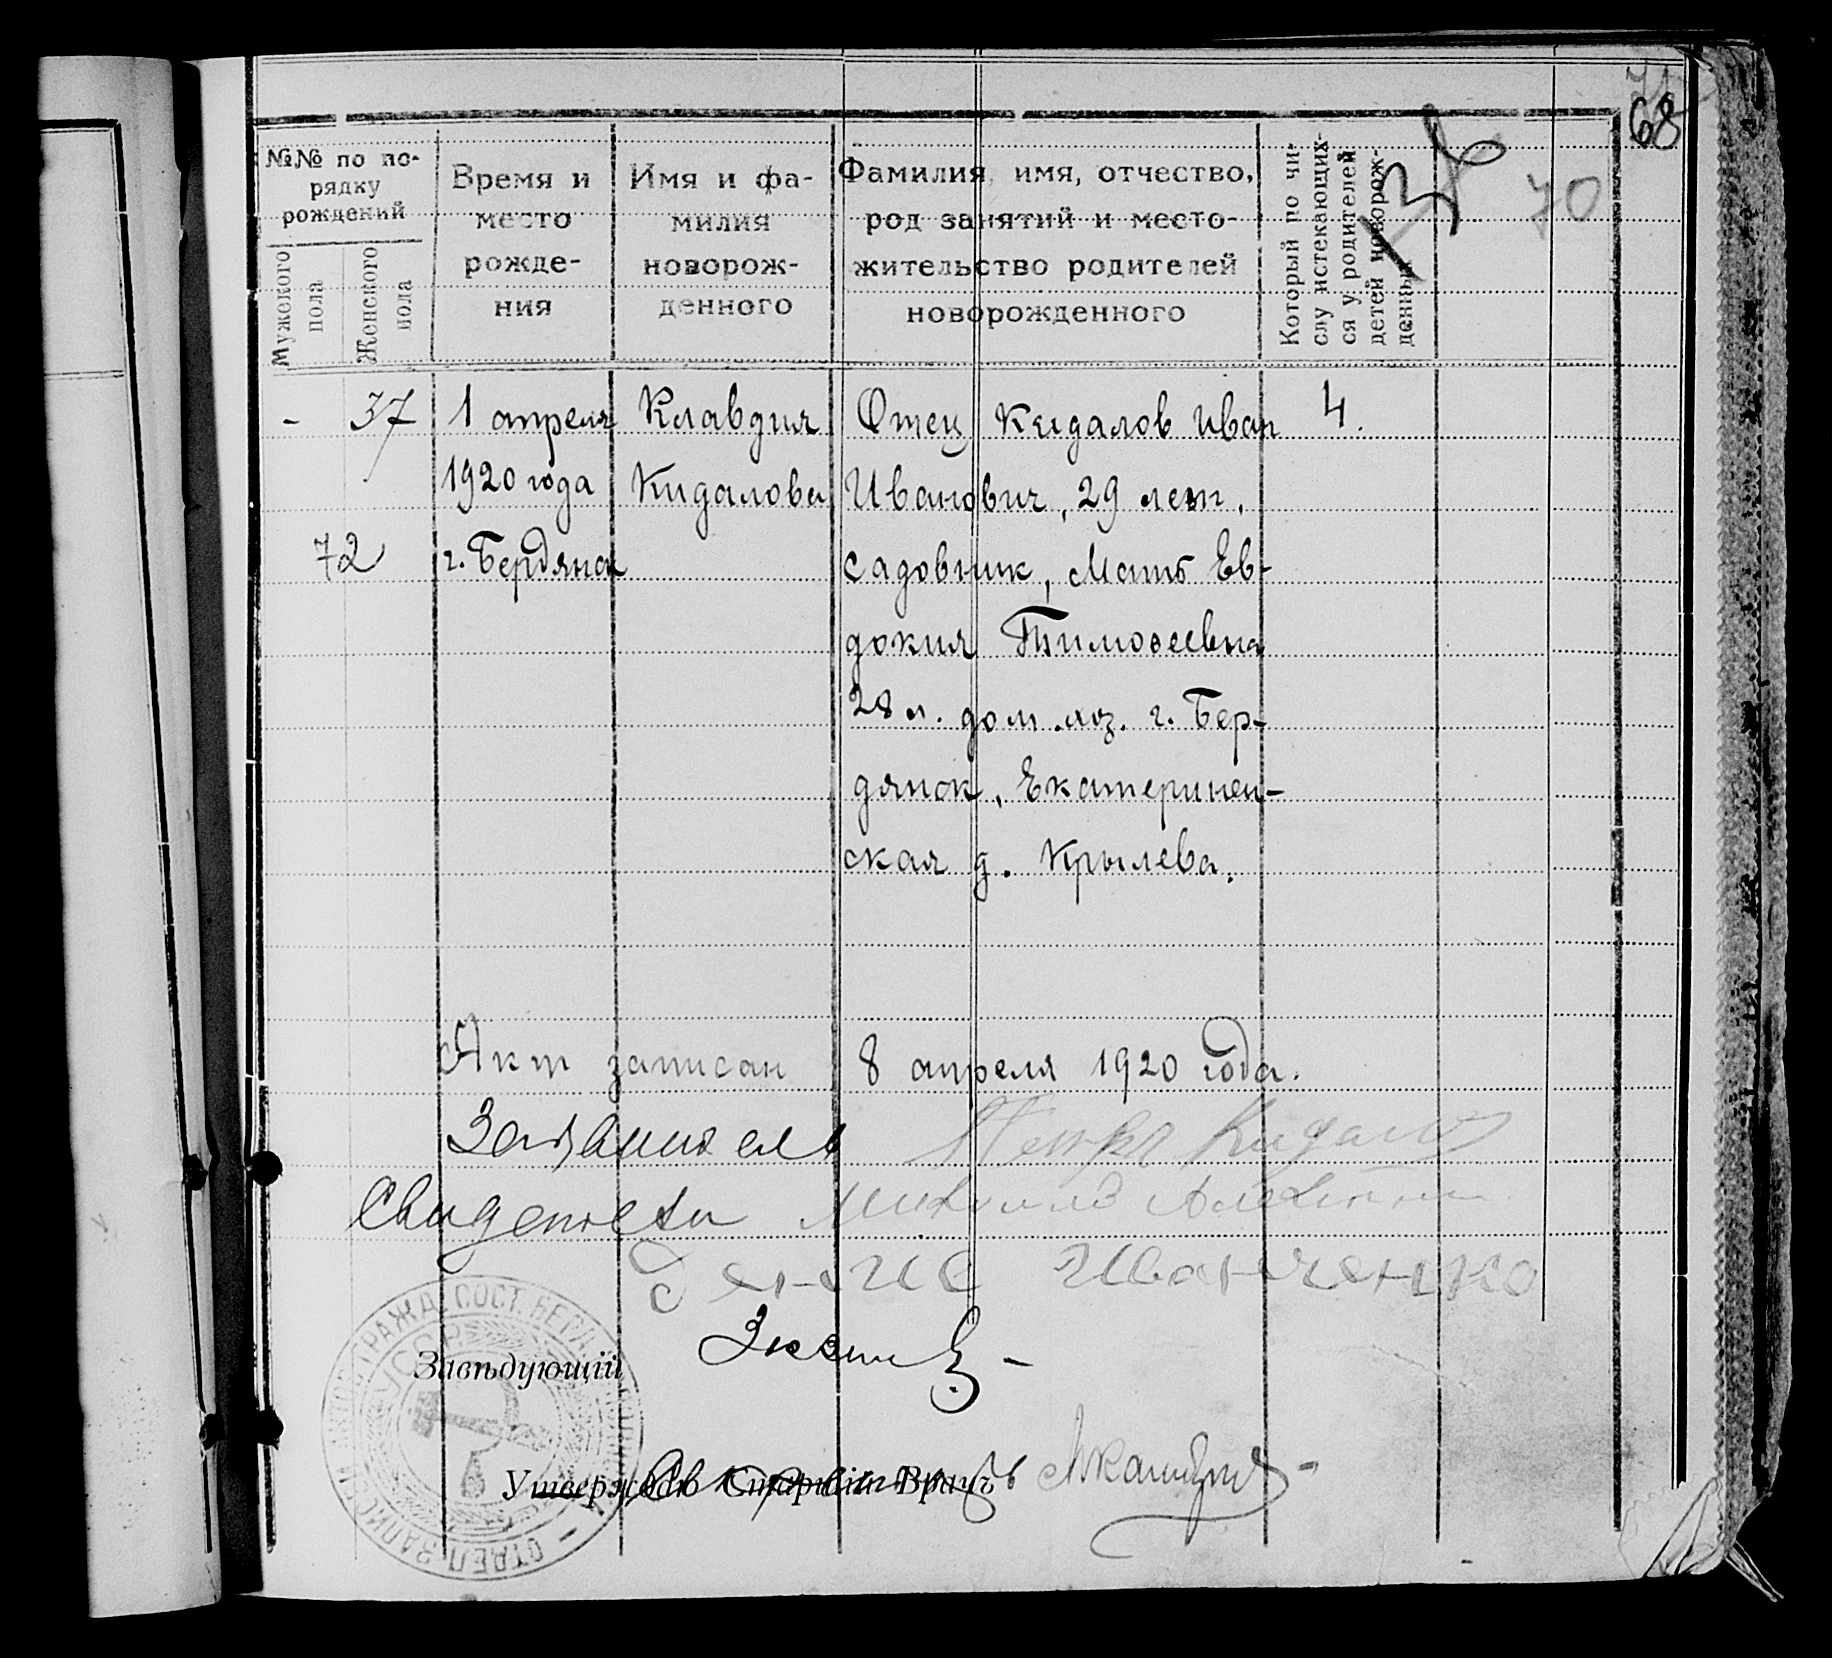 68
70
№№ по по-
рядку
рождений
Мужского
пола
Женского
пола
Время и
место
рожде-
ния
Имя и фа-
милия
новорож-
денного
Фамилия, имя, отчество,
род занятий и место-
жительство родителей
новорожденного
Который по чи-
слу истекающих-
ся у родителей
детей новорож-
денный
- 37 1 апреля Клавдия Отец Кидалов Иван 4.
1920 года Кидалова Иванович, 29 лет,
72 г. Бердянск садовник, Мать Ев-
докия Тимофеевна
28 л. дом. хоз. г. Бер-
дянск, Екатеринен-
ская д. Крылева.
Акт записан 8 апреля 1920 года.
Заявитель Петр Кидалов
Свидетели Михаил
Денис Иванченко
Завѣдующій
Утвержд Старшій Врачъ
ОТДЕЛ ЗАПИСИ АКТОВ ГРАЖД. СОСТ.
УССР